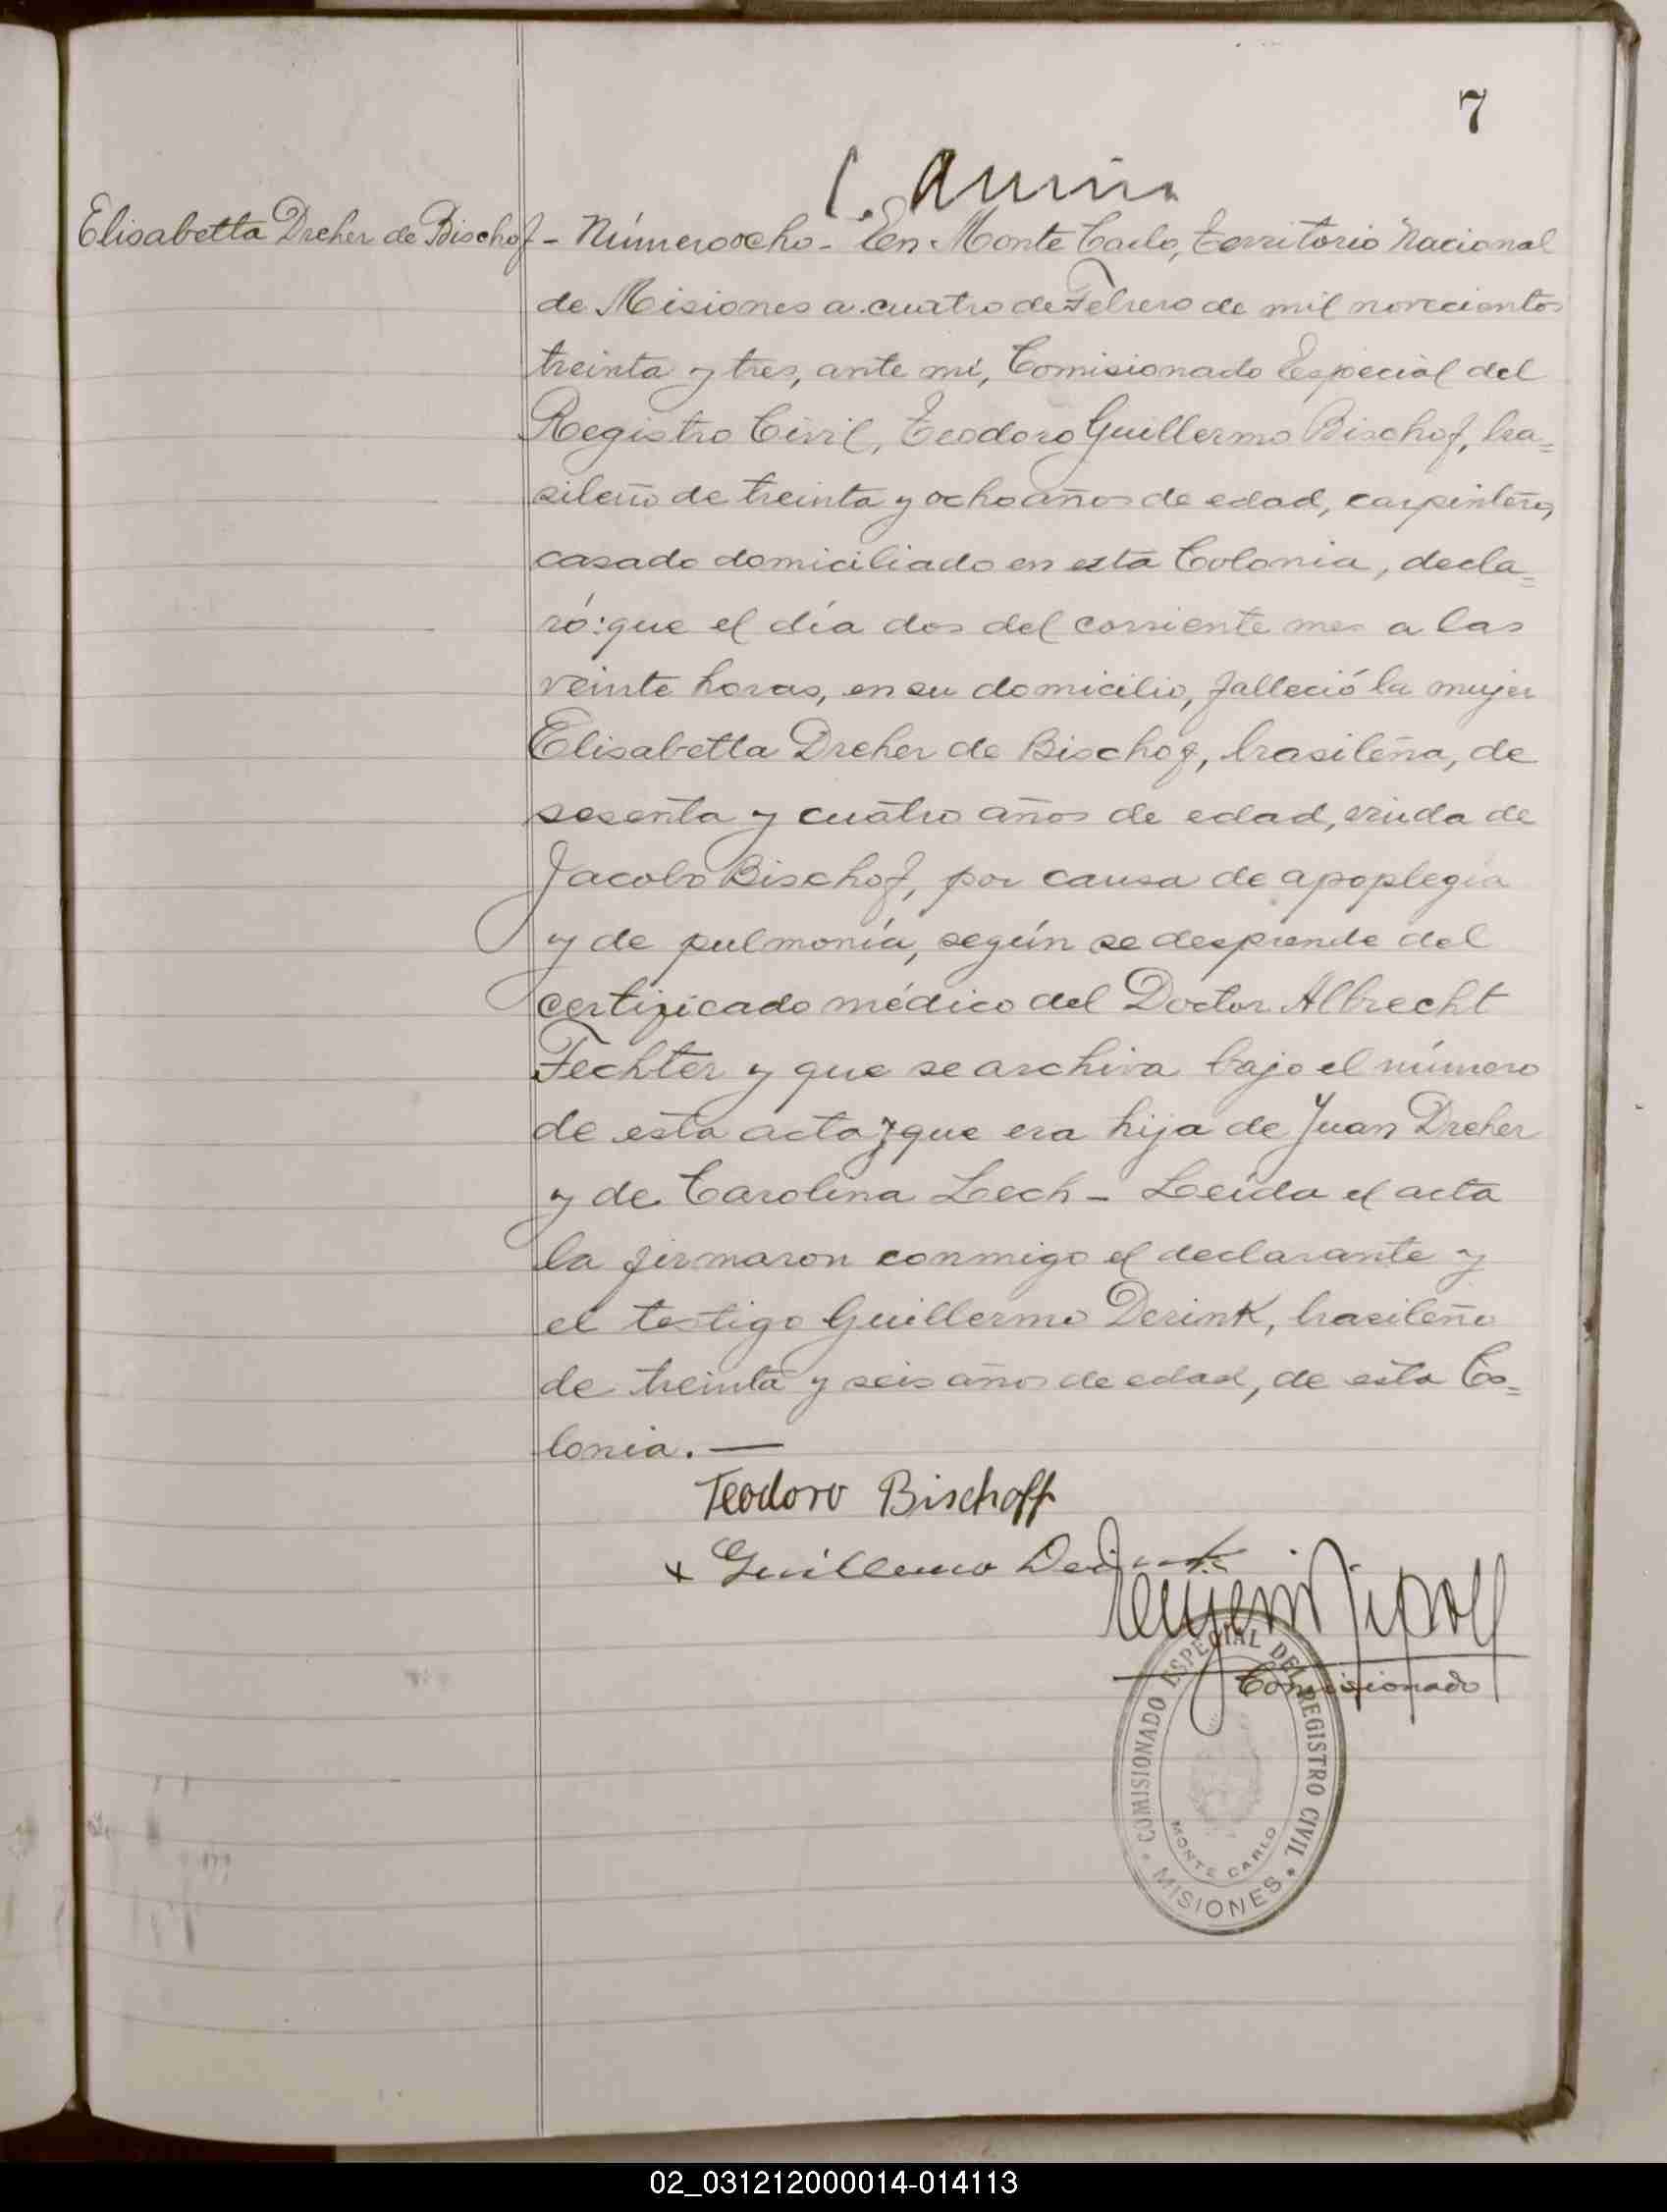 7
Elisabetta Dreher de Bischof - Número ocho - En Monte Carlo, Territorio Nacional
de Misiones a cuatro de Febrero de mil novecientos
treinta y tres, ante mí, Comisionado Especial del
Registro Civil, Teodoro Guillermo Bischof, bra=
sileño de treinta y ocho años de edad, carpintero,
casado domiciliado en esta Colonia, decla=
ró: que el día dos del corriente mes a las
veinte horas, en su domicilio, falleció la mujer
Elisabetta Dreher de Bischof, brasileña, de
sesenta y cuatro años de edad, viuda de
Jacobo Bischof, por causa de apoplegía
y de pulmonía, según se desprende del
certificado médico del Doctor Albrecht
Fechter y que se archiva bajo el número
de esta acta y que era hija de Juan Dreher
y de Carolina Lech - Leída el acta
la firmaron conmigo el declarante y
el testigo Guillermo Derink, brasileño
de treinta y seis años de edad, de esta Co=
lonia. —
Teodoro Bischoff
x Guillermo Derink
Comisionado
COMISIONADO ESPECIAL DEL REGISTRO CIVIL
MONTE CARLO
* MISIONES *
02_031212000014-014113